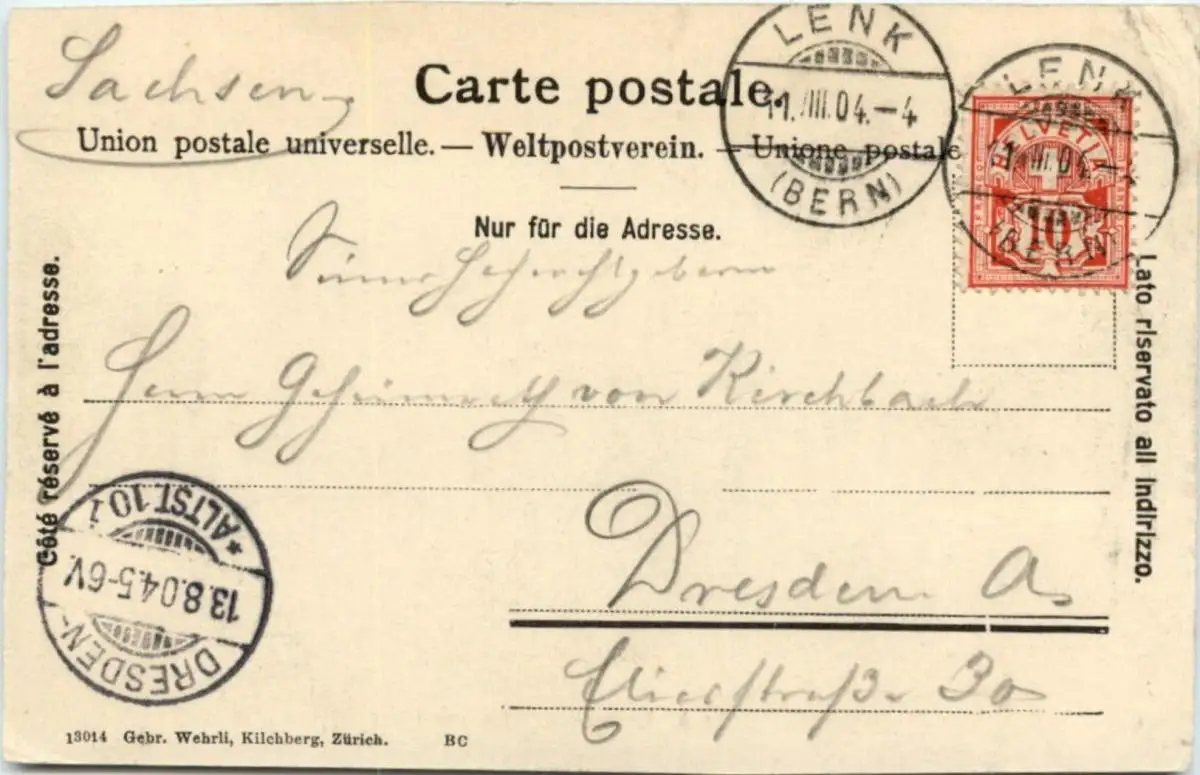 Sachsen
Carte postale.
Union postale universelle. — Weltpostverein. — Unione postale
Nur für die Adresse.
LENK
11.VIII.04.-4
(BERN)
LENK
11.VIII.04.-4
(BERN)
HELVETIA
10
Seiner Hochwohlgeborn
Herrn Geheimrath von Kirchbach
Dresden A.
straße 30
Côté réservé à l'adresse.
Lato riservato all indirizzo.
DRESDEN-
13.8.04.5-6V.
*ALTST.10
13014 Gebr. Wehrli, Kilchberg, Zürich. BC